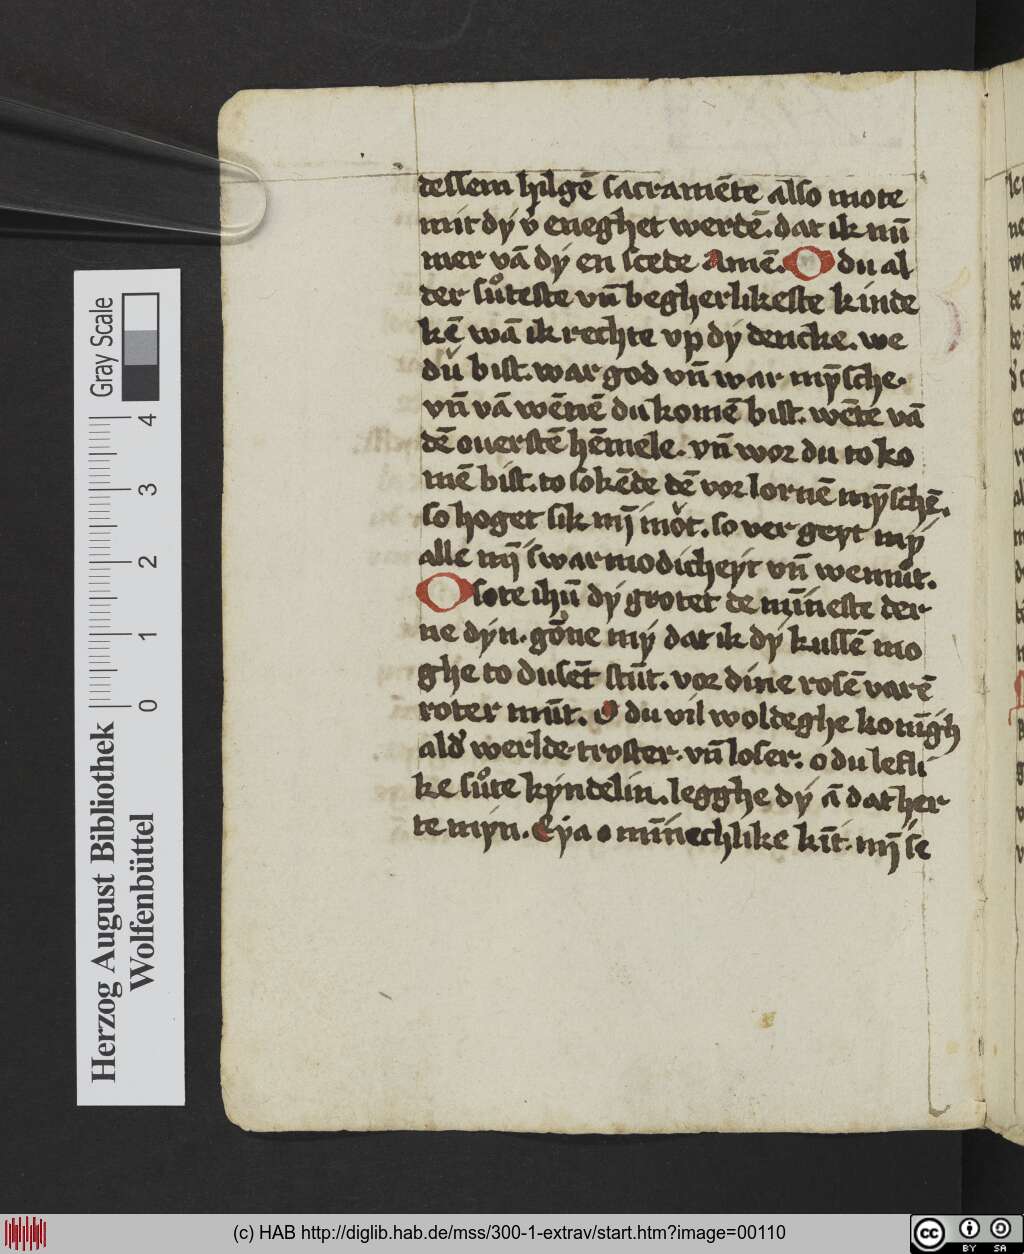 dessem hilgē sacramēte also mote
mit dy v̄ eneghet werdē. dat ik nū
mer vā dy en scede Amē. O du al
der sůteste vn̄ begherlikeste kinde
kē wā ik rechte vp dy dencke. we
du bist. war god vn̄ war mȳsche.
vn̄ vā wēnē du komē bist. wēte vā
dē ouerstē hēmele. vn̄ wor du to ko
mē bist. to sökēde dē vor lornē mȳschē.
so hoget sik mȳ möt. so ver geyt my
alle mȳ swarmodicheyt vn̄ wemůt.
O sote ihū dy grotet de mīneste der
ne dyn. göne my dat ik dy kussē mo
ghe to dusēt stūt. vor dine rosē varē
roter mūt. O du vil woldeghe konīgh
ald' werlde. troster. vn̄ loser. o du lefli
ke sůte kyndelin. legghe dy ā dat her
te myn. Eya o mīnechlike kīt. mȳ se
Gray Scale
0 1 2 3 4
Herzog August Bibliothek
Wolfenbüttel
(c) HAB http://diglib.hab.de/mss/300-1-extrav/start.htm?image=00110
cc BY SA